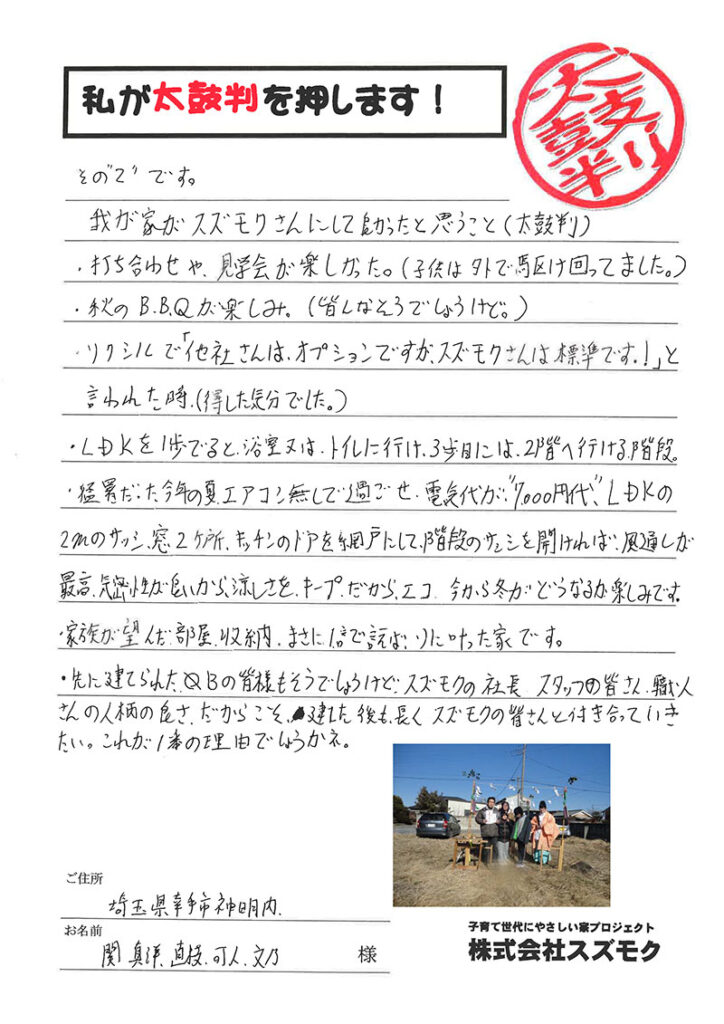 私が太鼓判を押します!
太鼓判
その"2"です。
我が家がスズモクさんにして良かったと思うこと(太鼓判)
・打ち合わせや、見学会が楽しかった。(子供は外で駆け回ってました。)
・秋のB.B.Qが楽しみ。(皆んなそうでしょうけど。)
・リクシルで「他社さんは、オプションですが、スズモクさんは標準です。!」と
言われた時、(得した気分でした。)
・LDKを1歩でると、浴室又は、トイレに行け、3歩目には、2階へ行ける階段。
・猛暑だった今年の夏、エアコン無しで過ごせ、電気代が、"7,000円代"、LDKの
2mのサッシ、窓2ヶ所、キッチンのドアを網戸にして、階段のサッシを開ければ、風通しが
最高、気密性が良いから、涼しさを、キープ、だから、エコ、今から冬がどうなるか楽しみです。
・家族が望んだ部屋、収納、まさに1言で言えば、りに叶った家です。
・先に建てられた、OBの皆様もそうでしょうけど、スズモクの社長、スタッフの皆さん、職人
さんの人柄の良さ、だからこそ、建てた後も、長くスズモクの皆さんと付き合っていき
たい。これが1番の理由でしょうかネ。
ご住所
埼玉県幸手市神明内
お名前
関 直 様
子育て世代にやさしい家プロジェクト
株式会社スズモク